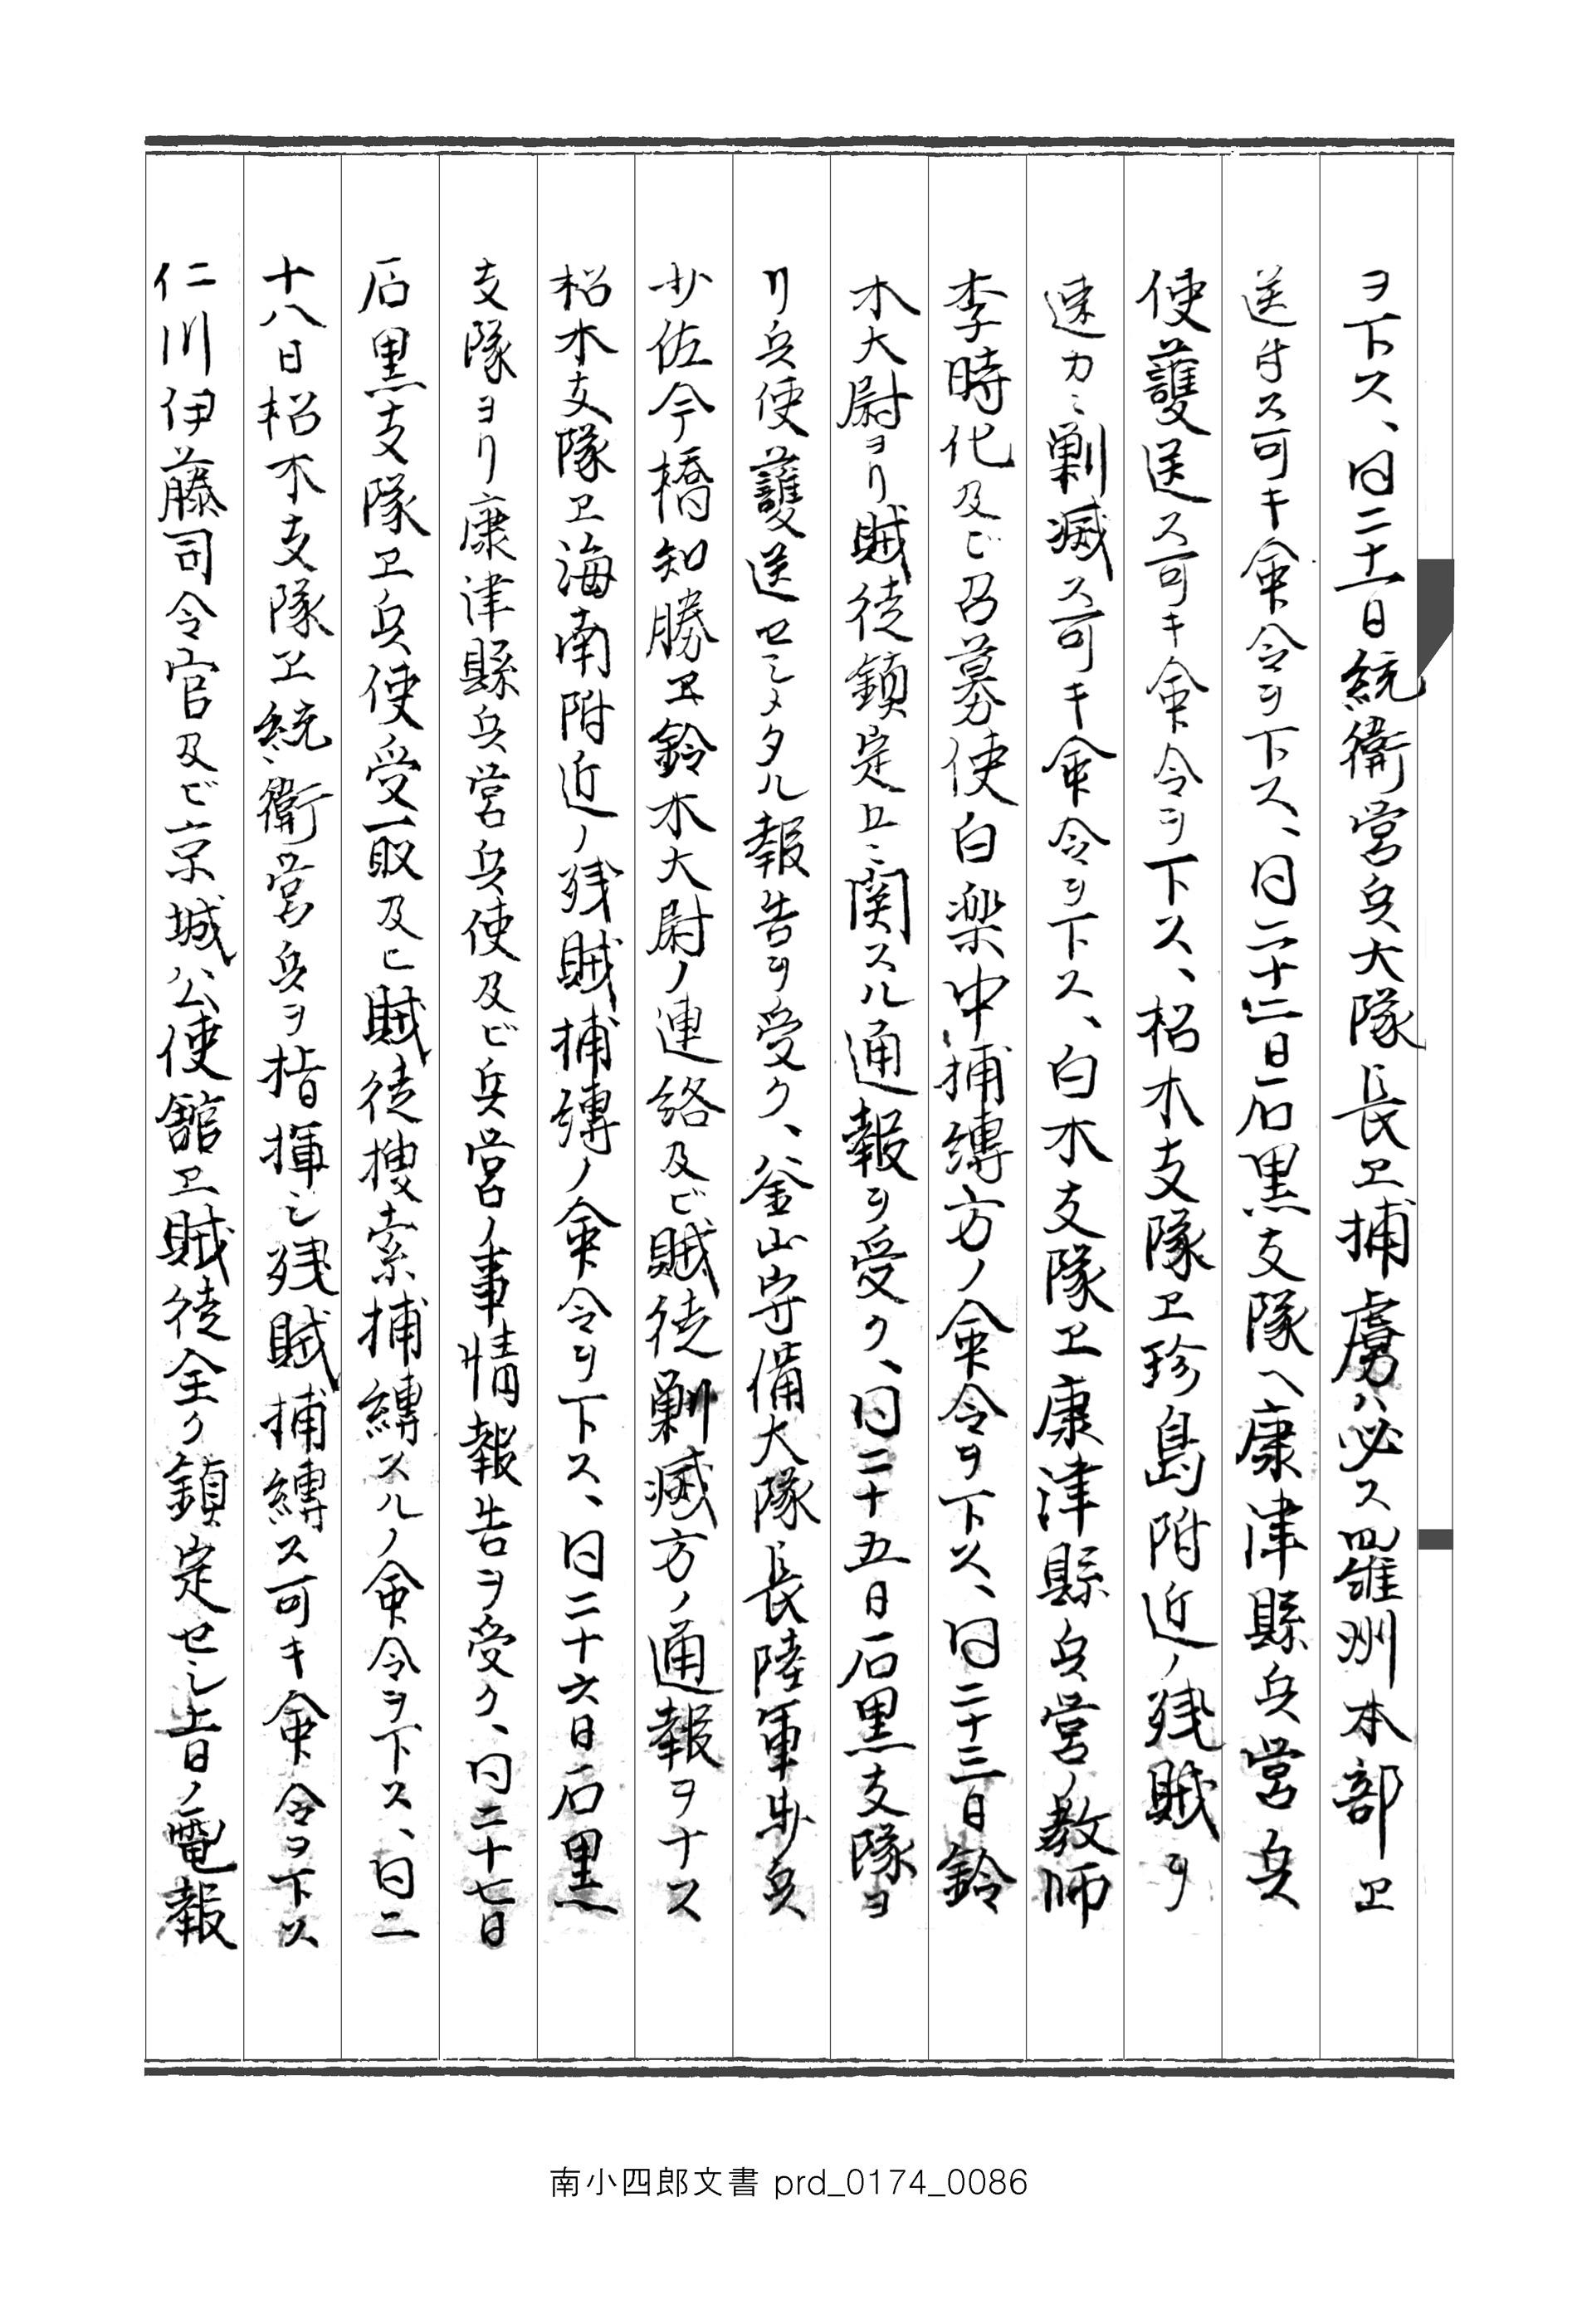 ヲ下ス、同二十一日統衛営兵大隊長ヱ捕虜ハ必ス羅洲本部ヱ
送付ス可キ命令ヲ下ス、同二十二日石黒支隊ヘ康津縣兵営兵
使護送ス可キ命令ヲ下ス、松木支隊ヱ珍島附近ノ残賊ヲ
速カニ剿滅ス可キ命令ヲ下ス、白木支隊ヱ康津縣兵営ノ教師
李時化及ビ召募使白楽中捕縛方ノ命令ヲ下ス、同二十三日鈴
木大尉ヨリ賊徒鎮定上ニ関スル通報ヲ受ク、同二十五日石黒支隊ヨ
リ兵使護送セシメタル報告ヲ受ク、釜山守備大隊長陸軍歩兵
少佐今橋知勝ヱ鈴木大尉ノ連絡及ビ賊徒剿滅方ノ通報ヲナス
松木支隊ヱ海南附近ノ残賊捕縛ノ命令ヲ下ス、同二十六日石黒
支隊ヨリ康津縣兵営兵使及ビ兵営ノ事情報告ヲ受ク、同二十七日
石黒支隊ヱ兵使受取及ヒ賊徒捜索捕縛スルノ命令ヲ下ス、同二
十八日松木支隊ヱ統衛営兵ヲ指揮シ残賊捕縛ス可キ命令ヲ下ス
仁川伊藤司令官及ビ京城公使館ヱ賊徒全ク鎮定セシ旨ノ電報
南小四郎文書 prd_0174_0086